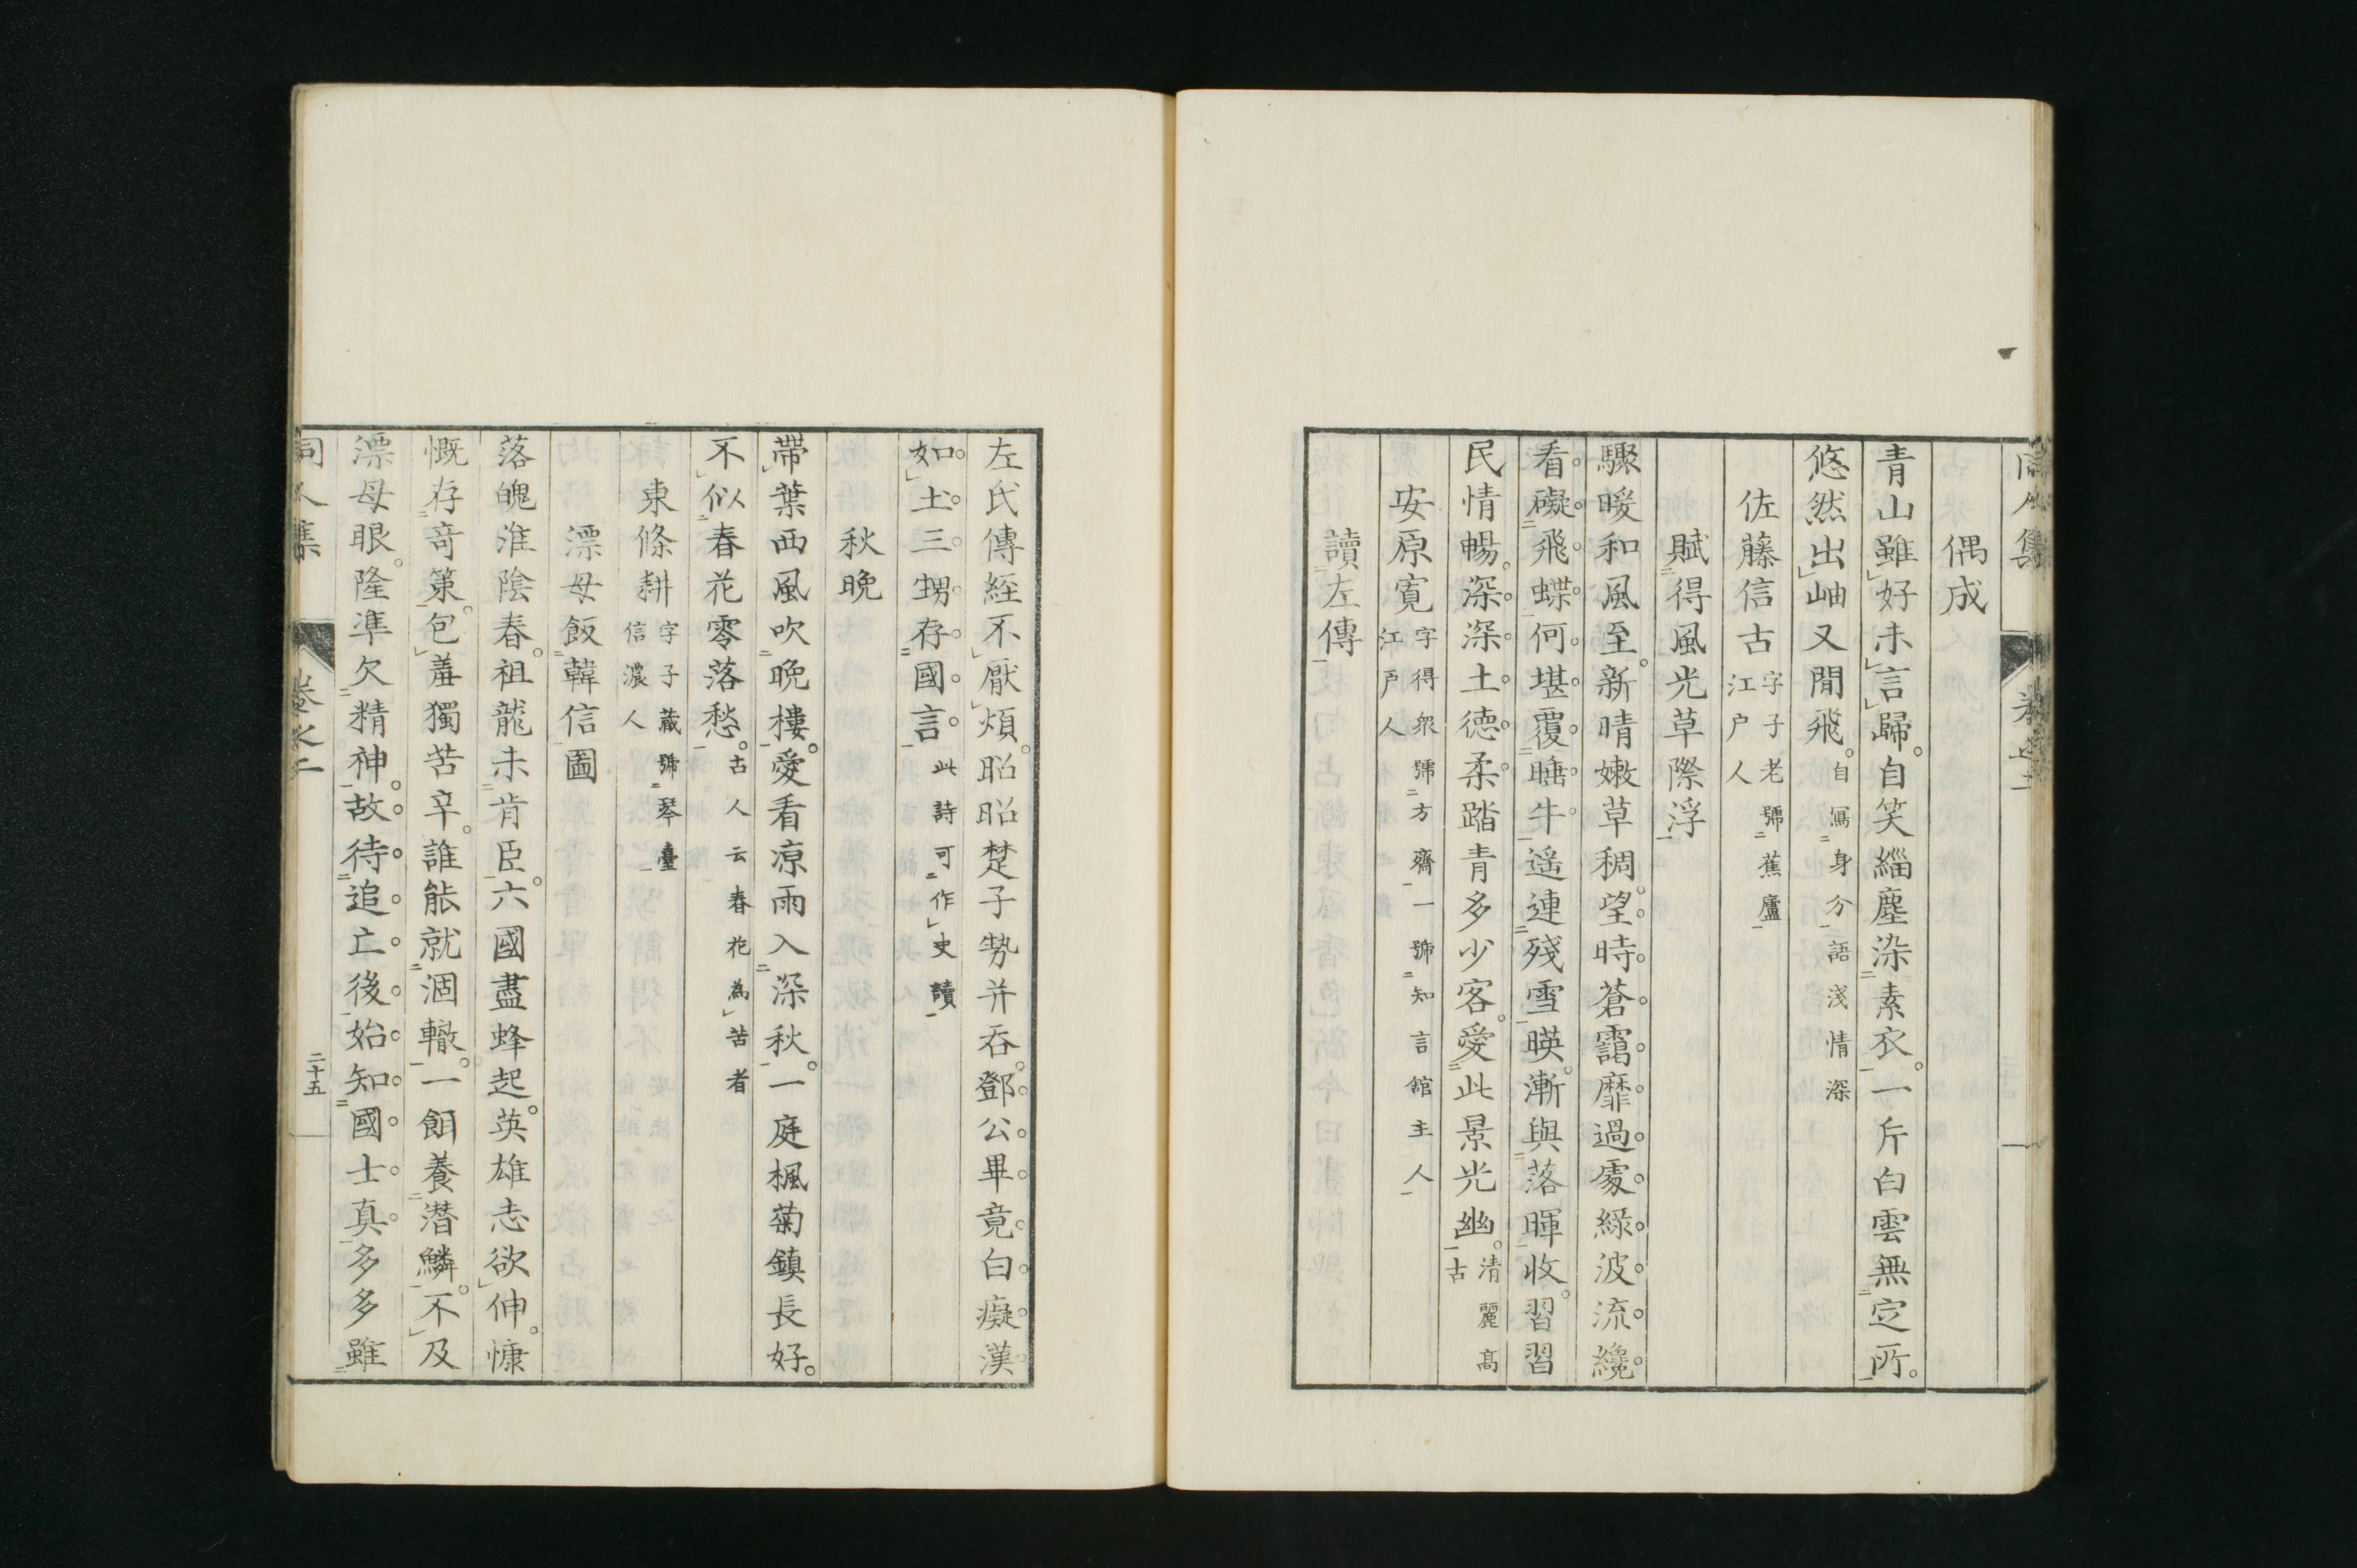 同人集　卷之二
偶成
青山雖好未言歸。自笑緇塵染素衣。一斤白雲無定所。
悠然出岫又閒飛。自寫身分語淺情深
佐藤信古 字子老號蕉廬
江戸人
賦得風光草際浮
驟暖和風至。新晴嫩草稠。望時蒼靄靡。過處綠波流。纔
看礙飛蝶。何堪覆睡牛。遥連殘雪暎。漸與落暉收。習習
民情暢。深深土德柔。踏青多少客。愛此景光幽。清麗高
古
安原寛 字得衆號方齋一號知言館主人
江戸人
讀左傳
左氏傳經不厭煩。昭昭楚子勢并吞。鄧公畢竟白癡漢
如土三甥存國言。此詩可作史讀
秋晩
帶葉西風吹晩樓。愛看凉雨入深秋。一庭楓菊鎮長好。
不似春花零落愁。古人云春花為苦者
東條耕 字子蔵號琴臺
信濃人
漂母飯韓信圖
落魄淮陰春。祖龍未肯臣。六國盡蜂起。英雄志欲伸。慷
慨存奇策。包羞獨苦辛。誰能就涸轍。一餌養潜鱗。不及
漂母眼。隆準欠精神。故待追亡後。始知國士真。多多雖
同人集　卷之二　二十五